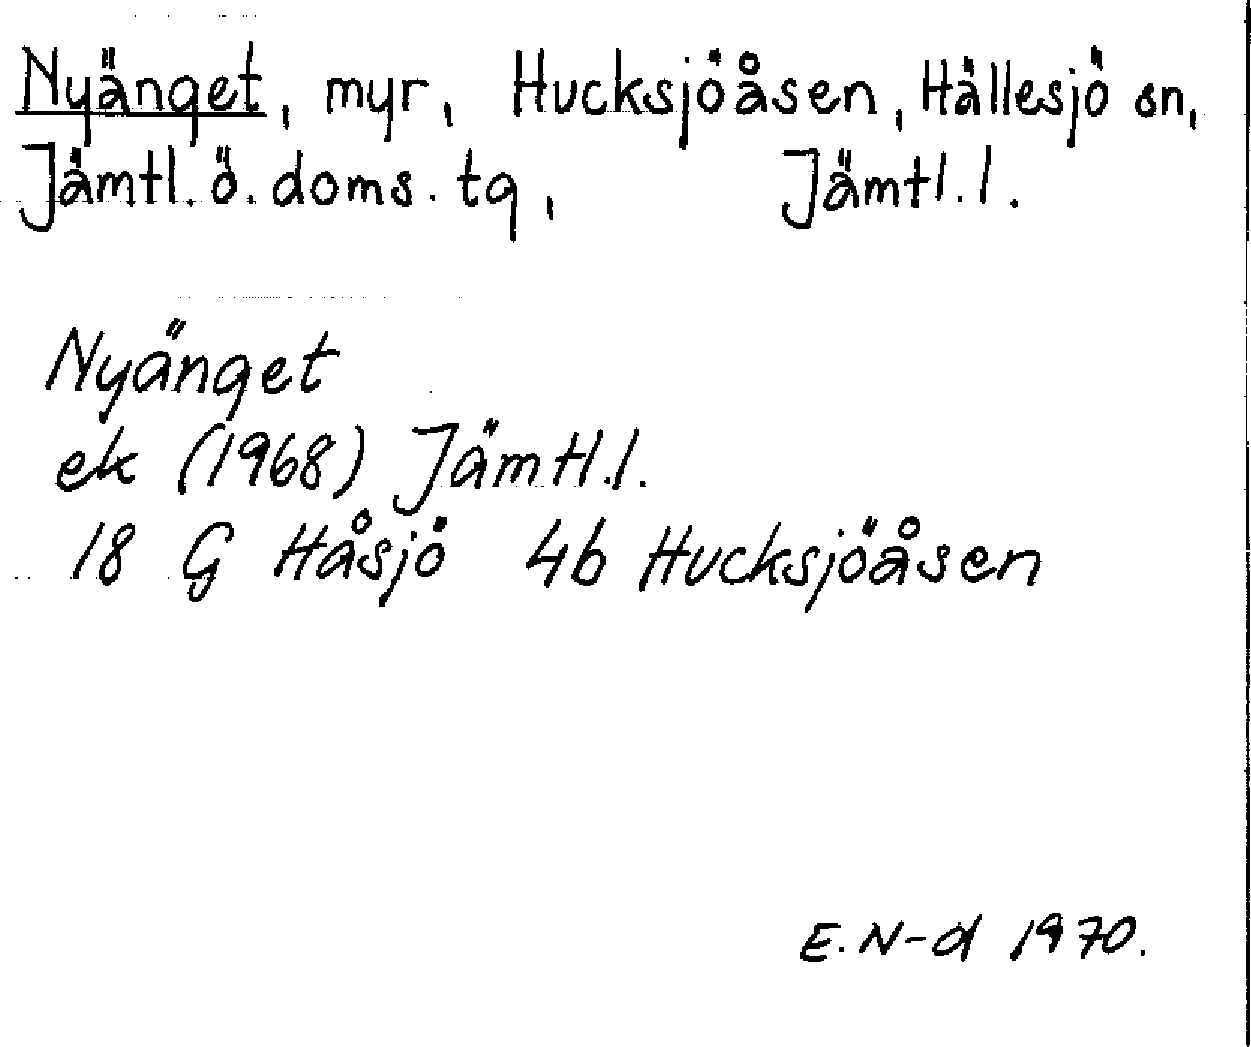 Nyänget, myr, Hucksjöåsen, Hällesjö sn,
Jämtl. ö. doms. tg, Jämtl. l.
Nyänget
ek (1968) Jämtl. l.
18 G Håsjö 4b Hucksjöåsen
E. N-d 1970.